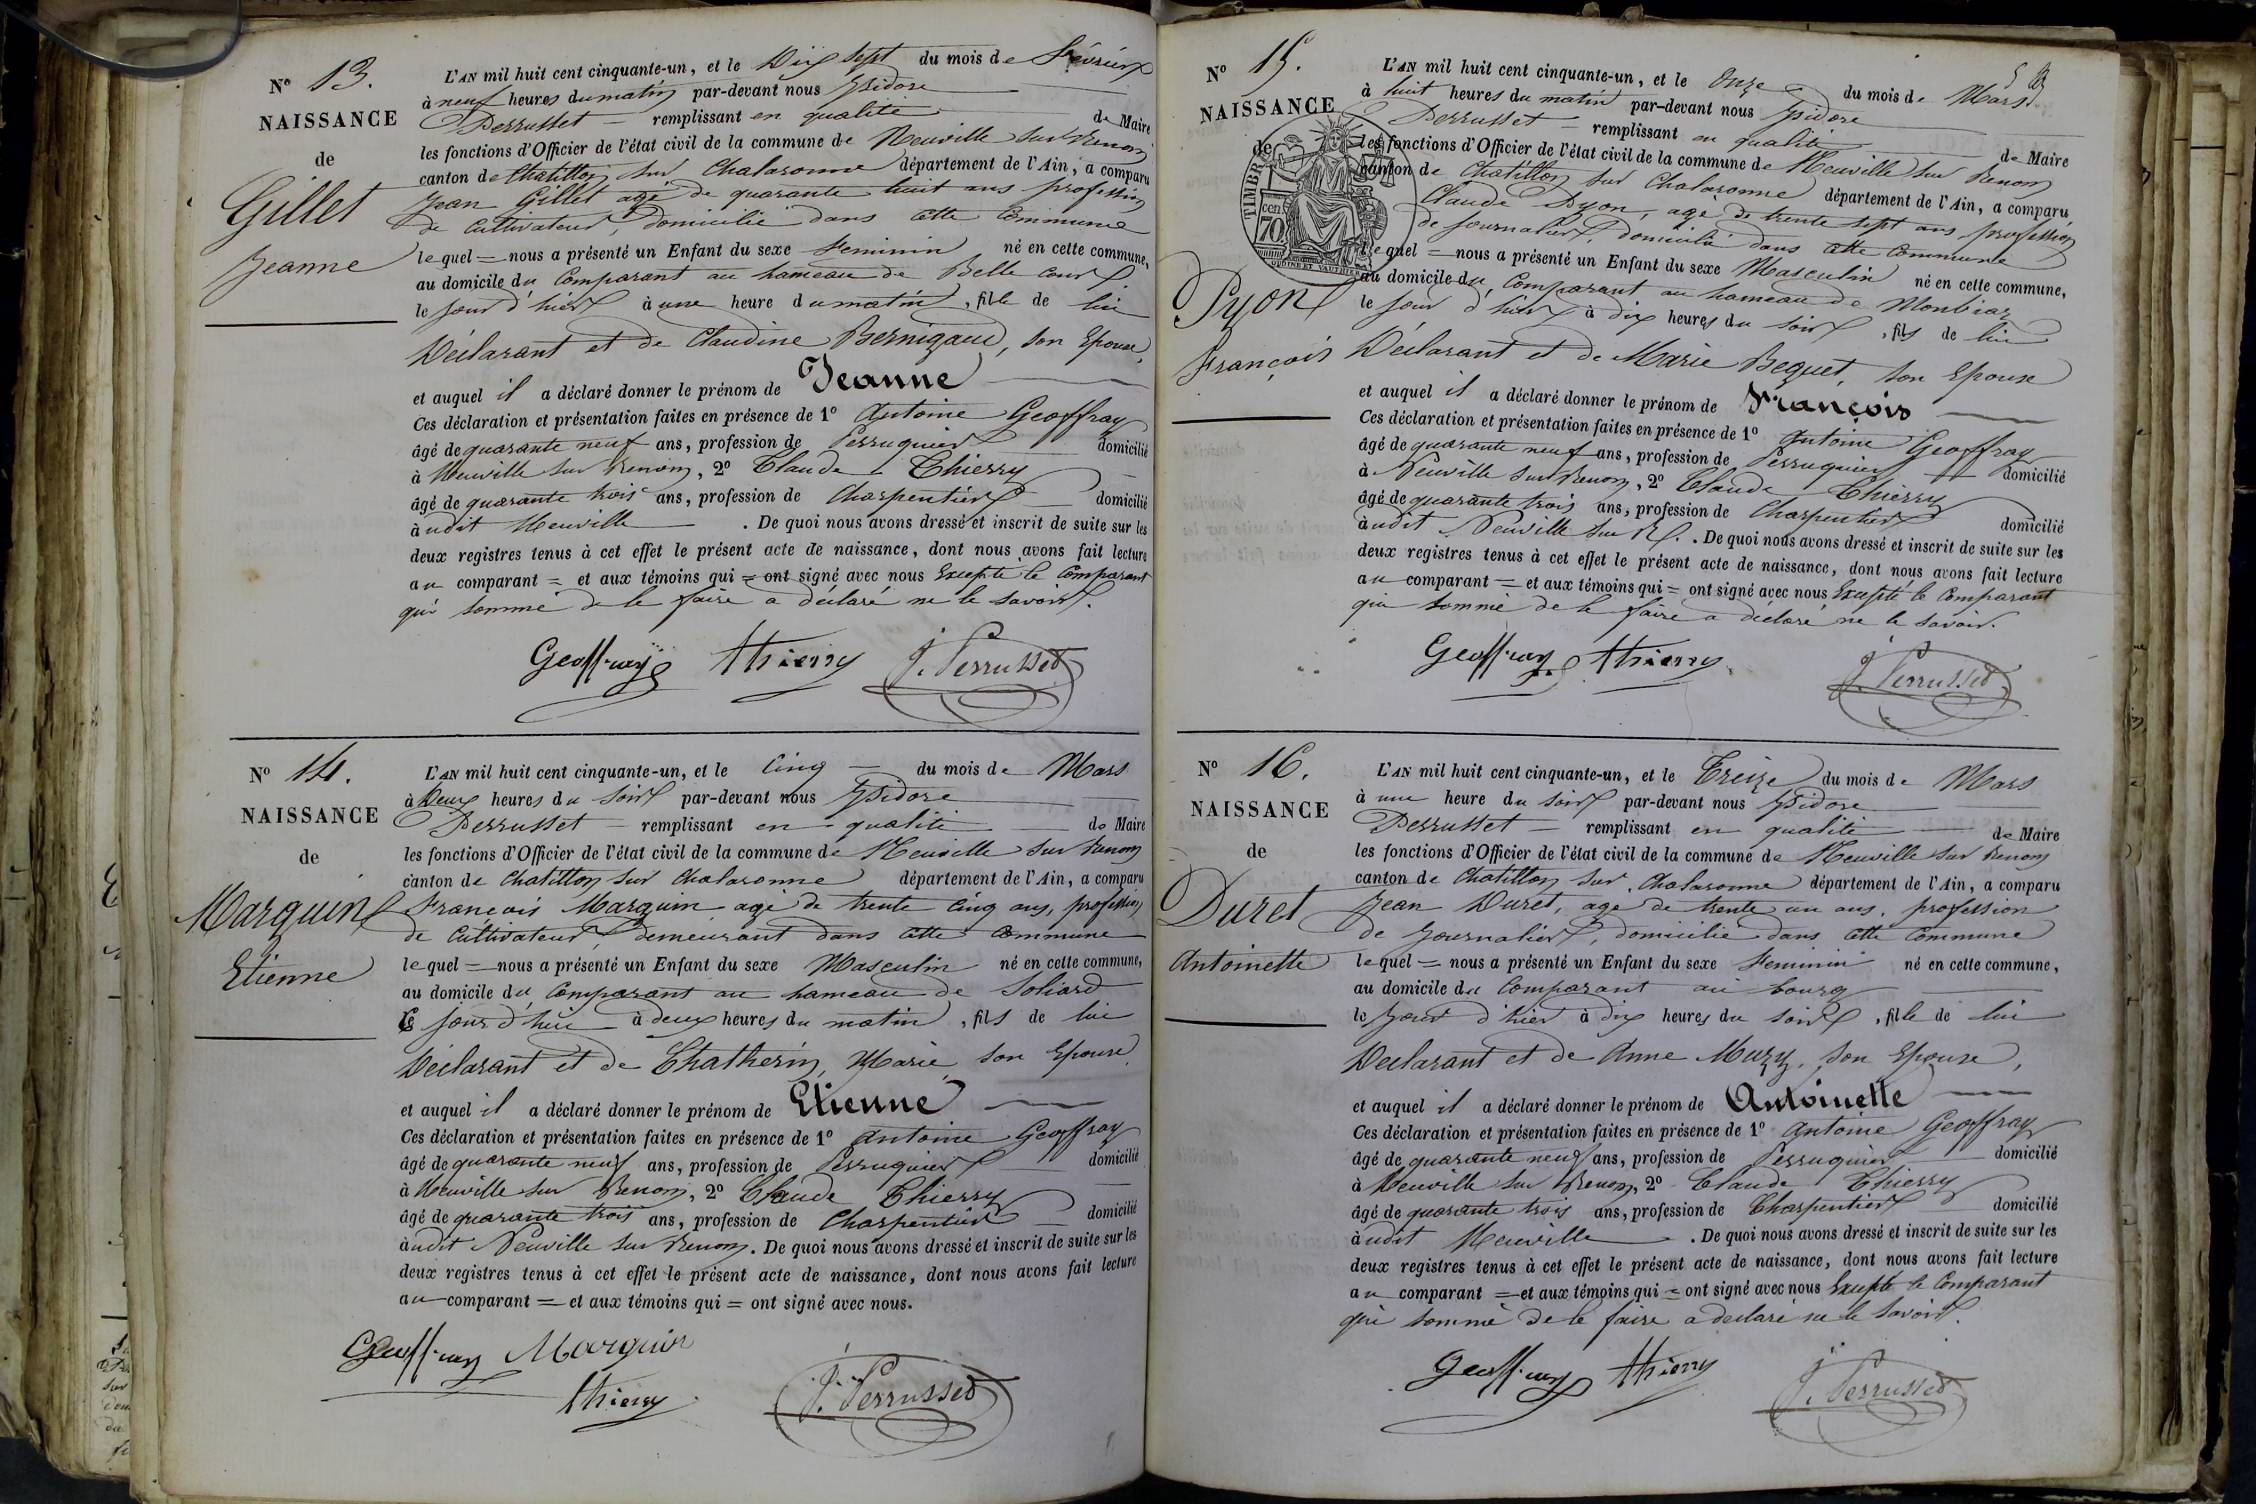 N° 13.
NAISSANCE
de
Gillet
Jeanne
L'AN mil huit cent cinquante-un, et le Dix sept du mois de Février
à neuf heures du matin par-devant nous Ysidore
Perrusset = remplissant en qualité de Maire
les fonctions d'Officier de l'état civil de la commune de Neuville sur Renom
canton de Chatillon sur Chalaronne département de l'Ain, a comparu
Jean Gillet agé de quarante huit ans profession
de Cultivateur, domicilié dans cette Commune
lequel = nous a présenté un Enfant du sexe Feminin né en cette commune,
au domicile du Comparant au hameau de Belle Cour
le jour d'hier à une heure du matin, fille de lui
Déclarant et de Claudine Bernigaud, son Epouse,
et auquel il a déclaré donner le prénom de Jeanne
Ces déclaration et présentation faites en présence de 1° Antoine Geoffray
âgé de quarante neuf ans, profession de Perruquier domicilié
à Neuville sur Renom, 2° Claude Thierry
âgé de quarante trois ans, profession de Charpentier domicilié
à udit Neuville . De quoi nous avons dressé et inscrit de suite sur les
deux registres tenus à cet effet le présent acte de naissance, dont nous avons fait lecture
au comparant = et aux témoins qui = ont signé avec nous Excepté le Comparant
qui sommé de le faire a déclaré ne le savoir.
Geoffray Thierry J. Perrusset
N° 14.
NAISSANCE
de
Marguin
Etienne
L'AN mil huit cent cinquante-un, et le Cinq du mois de Mars
à Deux heures du soir par-devant nous Ysidore
Perrusset = remplissant en qualité de Maire
les fonctions d'Officier de l'état civil de la commune de Neuville sur Renom
canton de Chatillon sur Chalaronne département de l'Ain, a comparu
François Marguin agé de trente Cinq ans, profession
de Cultivateur, demeurant dans cette Commune
lequel = nous a présenté un Enfant du sexe Masculin né en cette commune,
au domicile du Comparant au hameau de Soliard
Ce jour d'hui à deux heures du matin, fils de lui
Déclarant et de Chatherin, Marie, son Epouse,
et auquel il a déclaré donner le prénom de Etienne
Ces déclaration et présentation faites en présence de 1° Antoine Geoffray
âgé de quarante neuf ans, profession de Perruquier domicilié
à Neuville sur Renom, 2° Claude Thierry
âgé de quarante trois ans, profession de Charpentier domicilié
à udit Neuville sur Renom. De quoi nous avons dressé et inscrit de suite sur les
deux registres tenus à cet effet le présent acte de naissance, dont nous avons fait lecture
au comparant = et aux témoins qui = ont signé avec nous.
Geoffray Marguin
Thierry J. Perrusset
N° 15.
NAISSANCE
de
TIMBRE
cen. 70.
OUDINE ET VAUTHIER
Pyon
François
L'AN mil huit cent cinquante-un, et le Onze du mois de Mars
à huit heures du matin par-devant nous Ysidore
Perrusset = remplissant en qualité de Maire
les fonctions d'Officier de l'état civil de la commune de Neuville sur Renom
canton de Chatillon sur Chalaronne département de l'Ain, a comparu
Claude Pyon, agé de trente sept ans, profession
de Journalier, domicilié dans cette Commune
lequel = nous a présenté un Enfant du sexe Masculin né en cette commune,
au domicile du Comparant au hameau de Monbiaz
le jour d'hier à dix heures du soir, fils de lui
Déclarant et de Marie Bequet, son Epouse
et auquel il a déclaré donner le prénom de François
Ces déclaration et présentation faites en présence de 1° Antoine Geoffray
âgé de quarante neuf ans, profession de Perruquier domicilié
à Neuville sur Renom, 2° Claude Thierry
âgé de quarante trois ans, profession de Charpentier domicilié
à udit Neuville sur R. . De quoi nous avons dressé et inscrit de suite sur les
deux registres tenus à cet effet le présent acte de naissance, dont nous avons fait lecture
au comparant = et aux témoins qui = ont signé avec nous Excepté le Comparant
qui sommé de le faire a déclaré ne le savoir.
Geoffray Thierry J. Perrusset
N° 16.
NAISSANCE
de
Duret
Antoinette
L'AN mil huit cent cinquante-un, et le Treize du mois de Mars
à une heure du soir par-devant nous Ysidore
Perrusset = remplissant en qualité de Maire
les fonctions d'Officier de l'état civil de la commune de Neuville sur Renom
canton de Chatillon sur Chalaronne département de l'Ain, a comparu
Jean Duret, agé de trente un ans, profession
de Journalier, domicilié dans cette Commune
lequel = nous a présenté un Enfant du sexe Feminin né en cette commune,
au domicile du Comparant au bourg
le jour d'hier à dix heures du soir, fille de lui
Déclarant et de Anne Muzy, son Epouse,
et auquel il a déclaré donner le prénom de Antoinette
Ces déclaration et présentation faites en présence de 1° Antoine Geoffray
âgé de quarante neuf ans, profession de Perruquier domicilié
à Neuville sur Renom, 2° Claude Thierry
âgé de quarante trois ans, profession de Charpentier domicilié
à udit Neuville . De quoi nous avons dressé et inscrit de suite sur les
deux registres tenus à cet effet le présent acte de naissance, dont nous avons fait lecture
au comparant = et aux témoins qui = ont signé avec nous Excepté le Comparant
qui sommé de le faire a déclaré ne le savoir.
Geoffray Thierry J. Perrusset